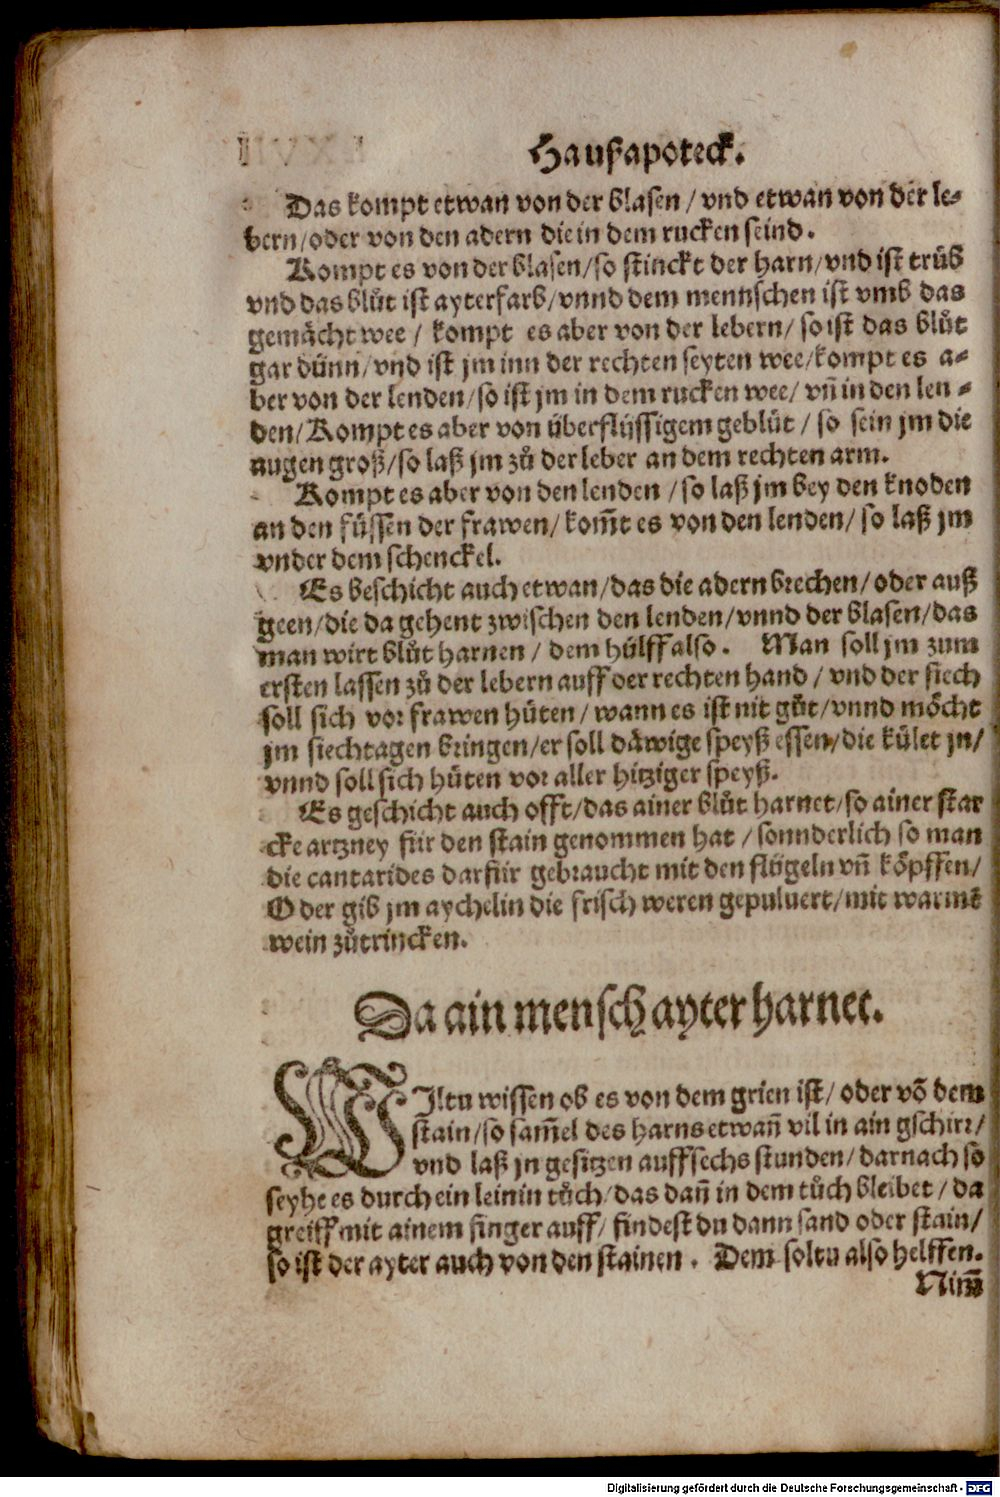 Haußapoteck.
Das kompt etwan von der blasen / vnd etwan von der le-
bern / oder von den adern die in dem rucken seind.
Kompt es von der blasen / so stinckt der harn / vnd ist trüb
vnd das blůt ist ayterfarb / vnnd dem mennschen ist vmb das
gemächt wee / kompt es aber von der lebern / so ist das blůt
gar dünn / vnd ist jm inn der rechten seyten wee / kompt es a-
ber von der lenden / so ist jm in dem rucken wee / vñ in den len-
den / Kompt es aber von überflüssigem geblüt / so sein jm die
augen groß / so laß jm zů der leber an dem rechten arm.
Kompt es aber von den lenden / so laß jm bey den knoden
an den füssen der frawen / kom̃t es von den lenden / so laß jm
vnder dem schenckel.
Es beschicht auch etwan / das die adern brechen / oder auß
geen / die da gehent zwischen den lenden / vnnd der blasen / das
man wirt blůt harnen / dem hülff also. Man soll jm zum
ersten lassen zů der lebern auff der rechten hand / vnd der siech
soll sich vor frawen hüten / wann es ist nit gůt / vnnd möcht
jm siechtagen bringen / er soll däwige speyß essen / die kület jn /
vnnd soll sich hüten vor aller hitziger speyß.
Es geschicht auch offt / das ainer blůt harnet / so ainer star
cke artzney für den stain genommen hat / sonnderlich so man
die cantarides darfür gebraucht mit den flügeln vñ köpffen /
Oder gib jm aychelin die frisch weren gepuluert / mit warmē
wein zůtrincken.
Da ain mensch ayter harnet.
WIltu wissen ob es von dem grien ist / oder võ dem
stain / so sam̃el des harns etwañ vil in ain gschirr /
vnd laß jn gesitzen auff sechs stunden / darnach so
seyhe es durch ein leinin tůch / das dañ in dem tůch bleibet / da
greiff mit ainem finger auff / findest du dann sand oder stain /
so ist der ayter auch von den stainen. Dem soltu also helffen.
Nim̃
Digitalisierung gefördert durch die Deutsche Forschungsgemeinschaft - DFG